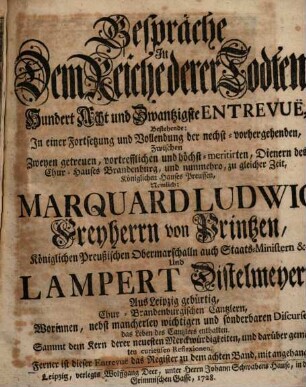 Gespräche
In
Dem Reiche derer Todten
Hundert Acht und Zwantzigste ENTREVUË,
Bestehende:
In einer Fortsetzung und Vollendung der nechst-vorhergehenden,
Zwischen
Zweyen getreuen, vortrefflichen und höchst-meritirten, Dienern des
Chur-Hauses Brandenburg, und nunmehro, zu gleicher Zeit,
Königlichen Hauses Preussen,
Nemlich:
MARQUARD LUDWIG
Freyherrn von Printzen,
Königlichen Preußischen Obermarschalln auch Staats-Ministern &
Und
LAMPERT Distelmeyer
Aus Leipzig gebürtig,
Chur-Brandenburgischen Cantzlern,
Worinnen, nebst mancherley wichtigen und sonderbaren Discurse
Das Leben des Cantzlers enthalten.
Sammt dem Kern derer neuesten Merckwürdigkeiten, und darüber gem
ten curieusen Reflexionen,
Ferner ist dieser Entrevuë das Register zu dem achten Band, mit angehan
Leipzig, verlegts Wolffgang Deer, unter Herrn Johann Schwabens Hause, in d
Grimmischen Gasse, 1728.